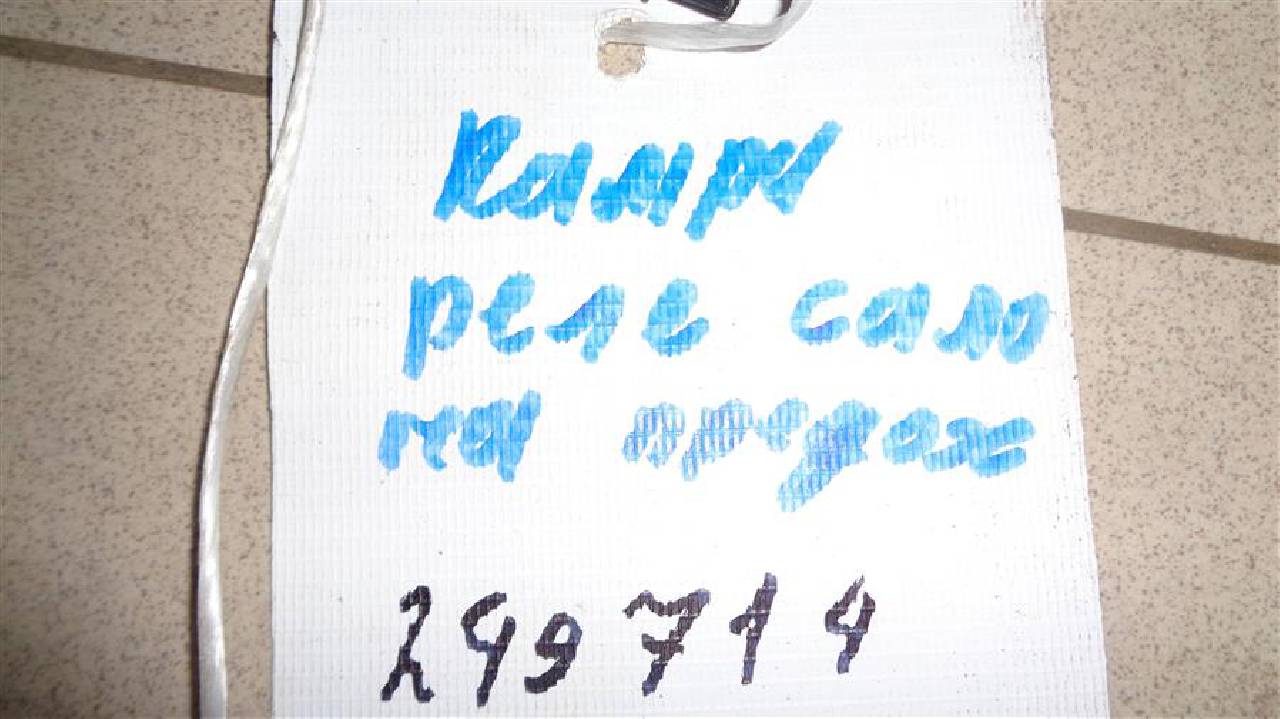 Камри
реле сало
на предох
249714